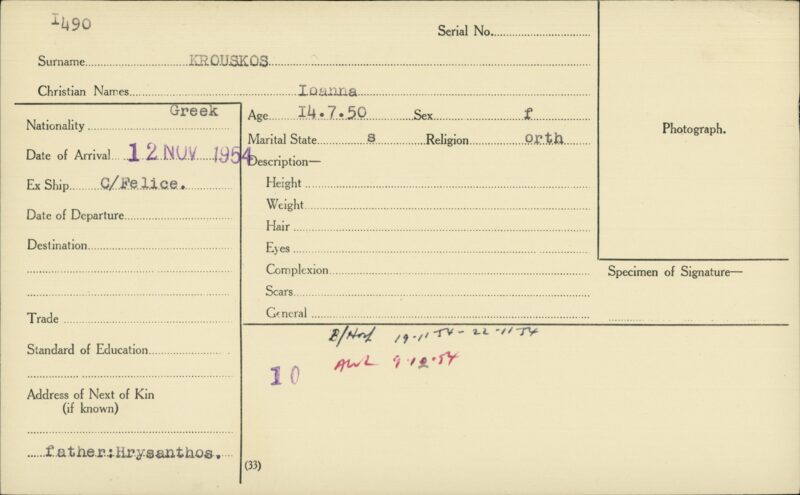 I490
Serial No.
Surname KROUSKOS
Christian Names Ioanna
Nationality Greek
Date of Arrival 12 NOV 1954
Ex Ship C/Felice.
Date of Departure
Destination
Trade
Standard of Education
Address of Next of Kin
(if known)
father:Hrysanthos.
Age I4.7.50 Sex f
Marital State s Religion orth
Description—
Height
Weight
Hair
Eyes
Complexion
Scars
General
Photograph.
Specimen of Signature—
19.11.54 - 22.11.54
AWL 9.12.54
10
(33)